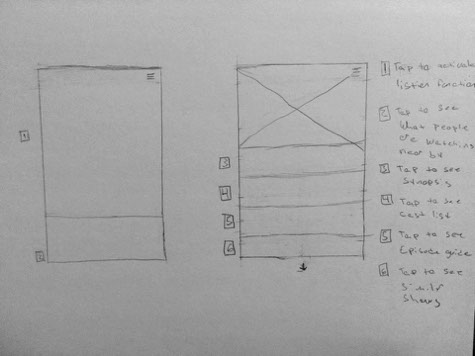 1
2
3
4
5
6
1 Tap to activate
listen function
2 Tap to see
what people
are watching
near by
3 Tap to see
synopsis
4 Tap to see
cast list
5 Tap to see
Episode guide
6 Tap to see
Similar
shows